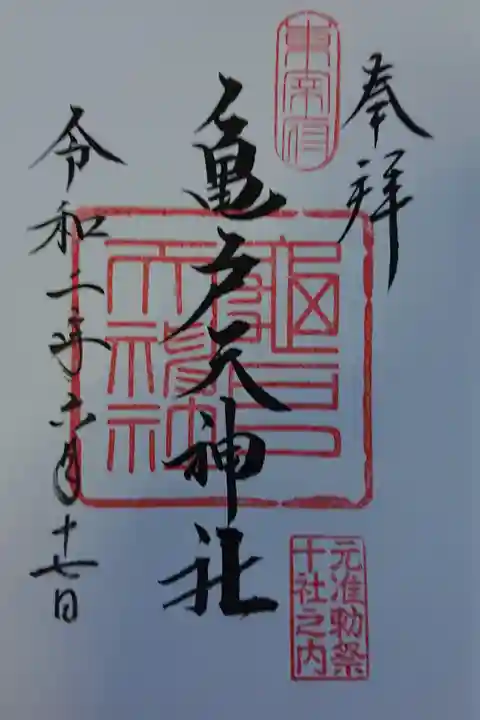 奉拝
東宰府
亀戸天神社
亀戸天神社
元准勅祭
十社之内
令和二年六月十七日